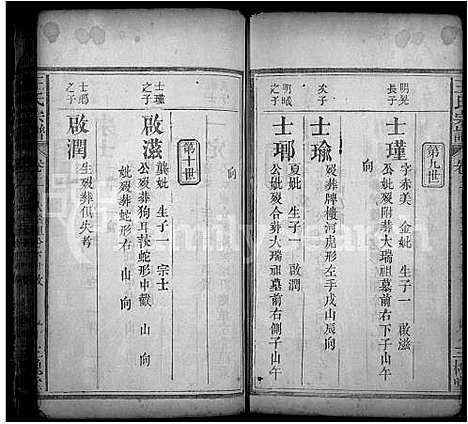 王氏宗譜
第九世
明晃
長子
士瑾
字赤美 金妣 生子一 啟滋
公妣歿附葬大瑞祖墓前右下子山午
向
次子
士瑜
歿葬牌樓河虎形左手戌山辰向
明晠
之子
士瑘
夏妣 生子一 啟潤
公妣歿合葬大瑞祖墓前右側子山午
向
第十世
士瑾
之子
啟滋
龔妣 生子一 宗士
公歿葬狗耳莰蛇形中嶯 山 向
妣歿葬蛇形右 山 向
士瑘
之子
啟潤
生歿葬俱失考